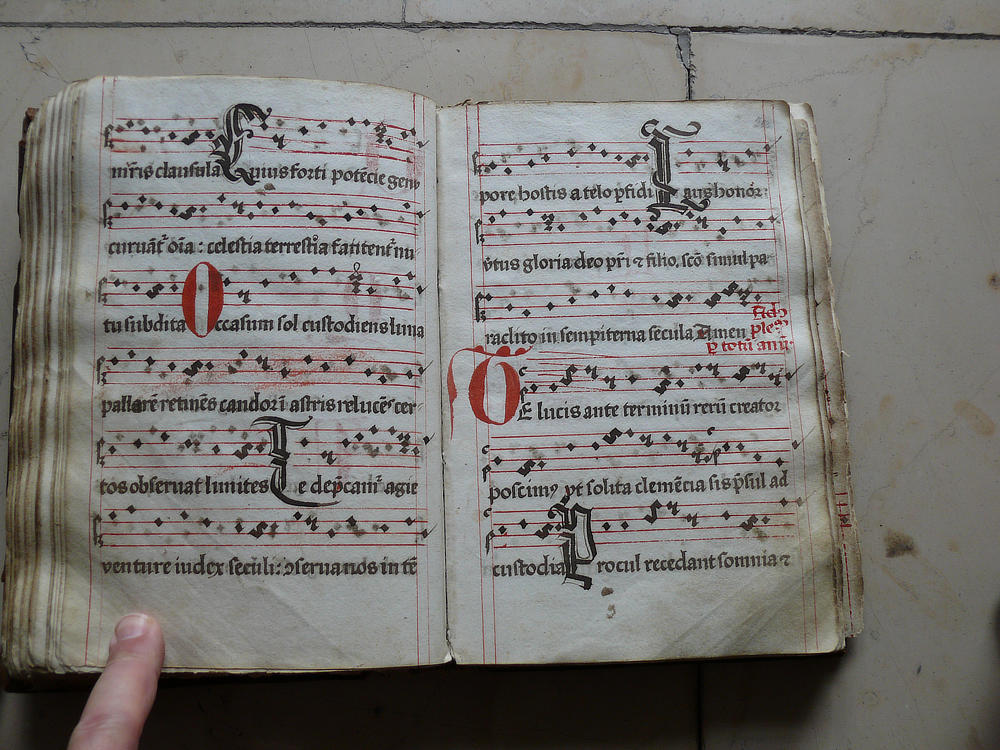 mr̄is clausula Cuius forti potēcie genu
curuāt᷑ oīa : celestia terrestria fatent᷑ nu
tu subdita Occasum sol custodiens luna
pallorē retinēs candor ī astris relucēs cer
tos obseruat limites Te dep̄cam᷑ agie
venture iudex seculi : ↄserua nos in tē
pore hostis a telo ꝑfidi Laus honor
v̄tus gloria deo pr̄i ⁊ filio. scō simul pa
raclito in sempiterna secula Amen
ꝑ totū anū
TE lucis ante terminū rerū creator
poscimꝰ vt solita clemēcia sis p̄sul ad
custodia Procul recedant somnia ⁊